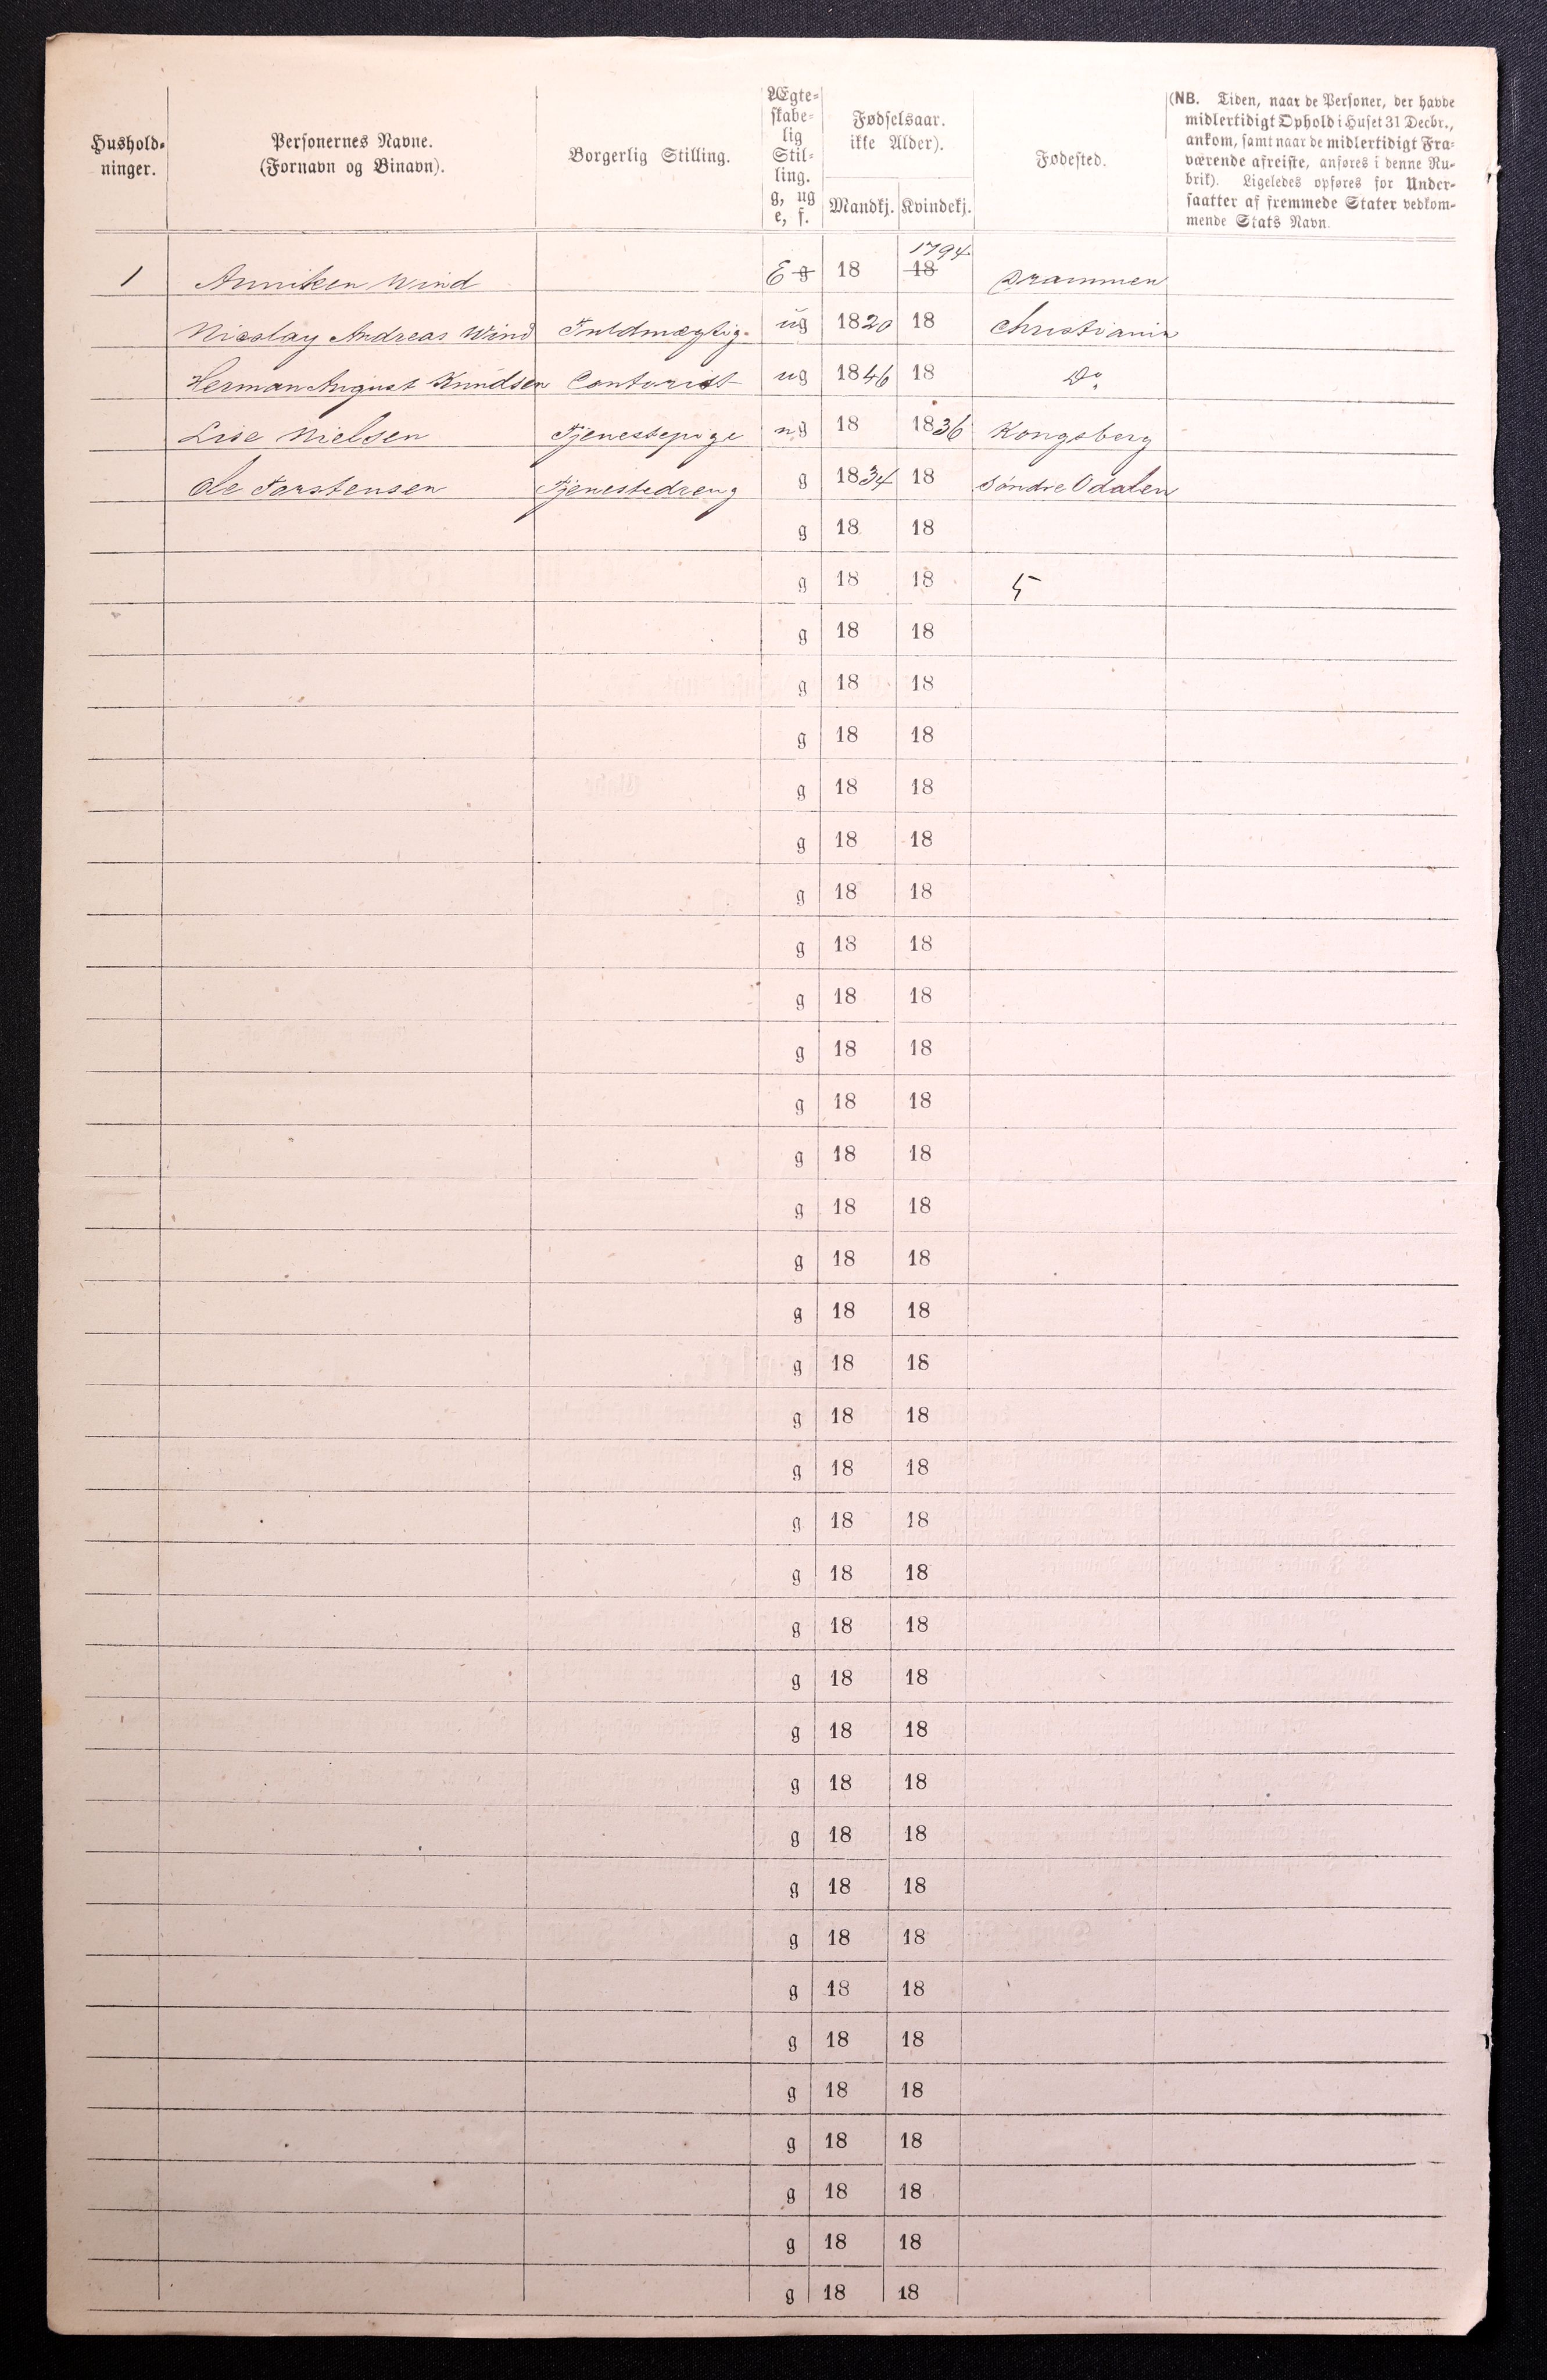 Hushold-
ninger.
Personernes Navne.
(Fornavn og Binavn).
Borgerlig Stilling.
Ægte-
skabe-
lig
Stil-
ling.
g, ug
e, f.
Fødselsaar.
ikke Alder).
Mandkj. Kvindekj.
Fødested.
(NB. Tiden, naar de Personer, der havde
midlertidigt Ophold i Huset 31 Decbr.,
ankom, samt naar de midlertidigt Fra-
værende afreiste, anføres i denne Ru-
brik). Ligeledes opføres for Under-
saatter af fremmede Stater vedkom-
mende Stats Navn.
1 Anniken Wind E g 18 18 1794 Drammen
Nicolay Andreas Wind Fuldmægtig ug 1820 18 Christiania
Herman August Knudsen Contorist ug 1846 18 Do
Lise Nielsen Tjenestepige ug 18 1836 Kongsberg
Ole Torstensen Tjenestedreng g 1834 18 Søndre Odalen
g 18 18
g 18 18 5
g 18 18
g 18 18
g 18 18
g 18 18
g 18 18
g 18 18
g 18 18
g 18 18
g 18 18
g 18 18
g 18 18
g 18 18
g 18 18
g 18 18
g 18 18
g 18 18
g 18 18
g 18 18
g 18 18
g 18 18
g 18 18
g 18 18
g 18 18
g 18 18
g 18 18
g 18 18
g 18 18
g 18 18
g 18 18
g 18 18
g 18 18
g 18 18
g 18 18